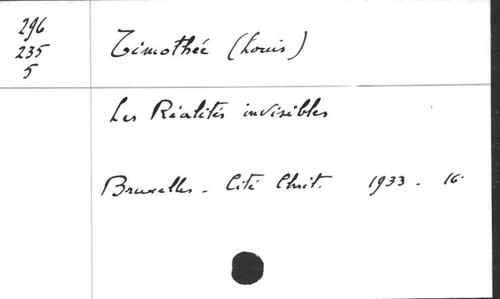 296
235
5
Timothée (Louis)
Les Réalités invisibles
Bruxelles - Cité Chrét. 1933 - 16